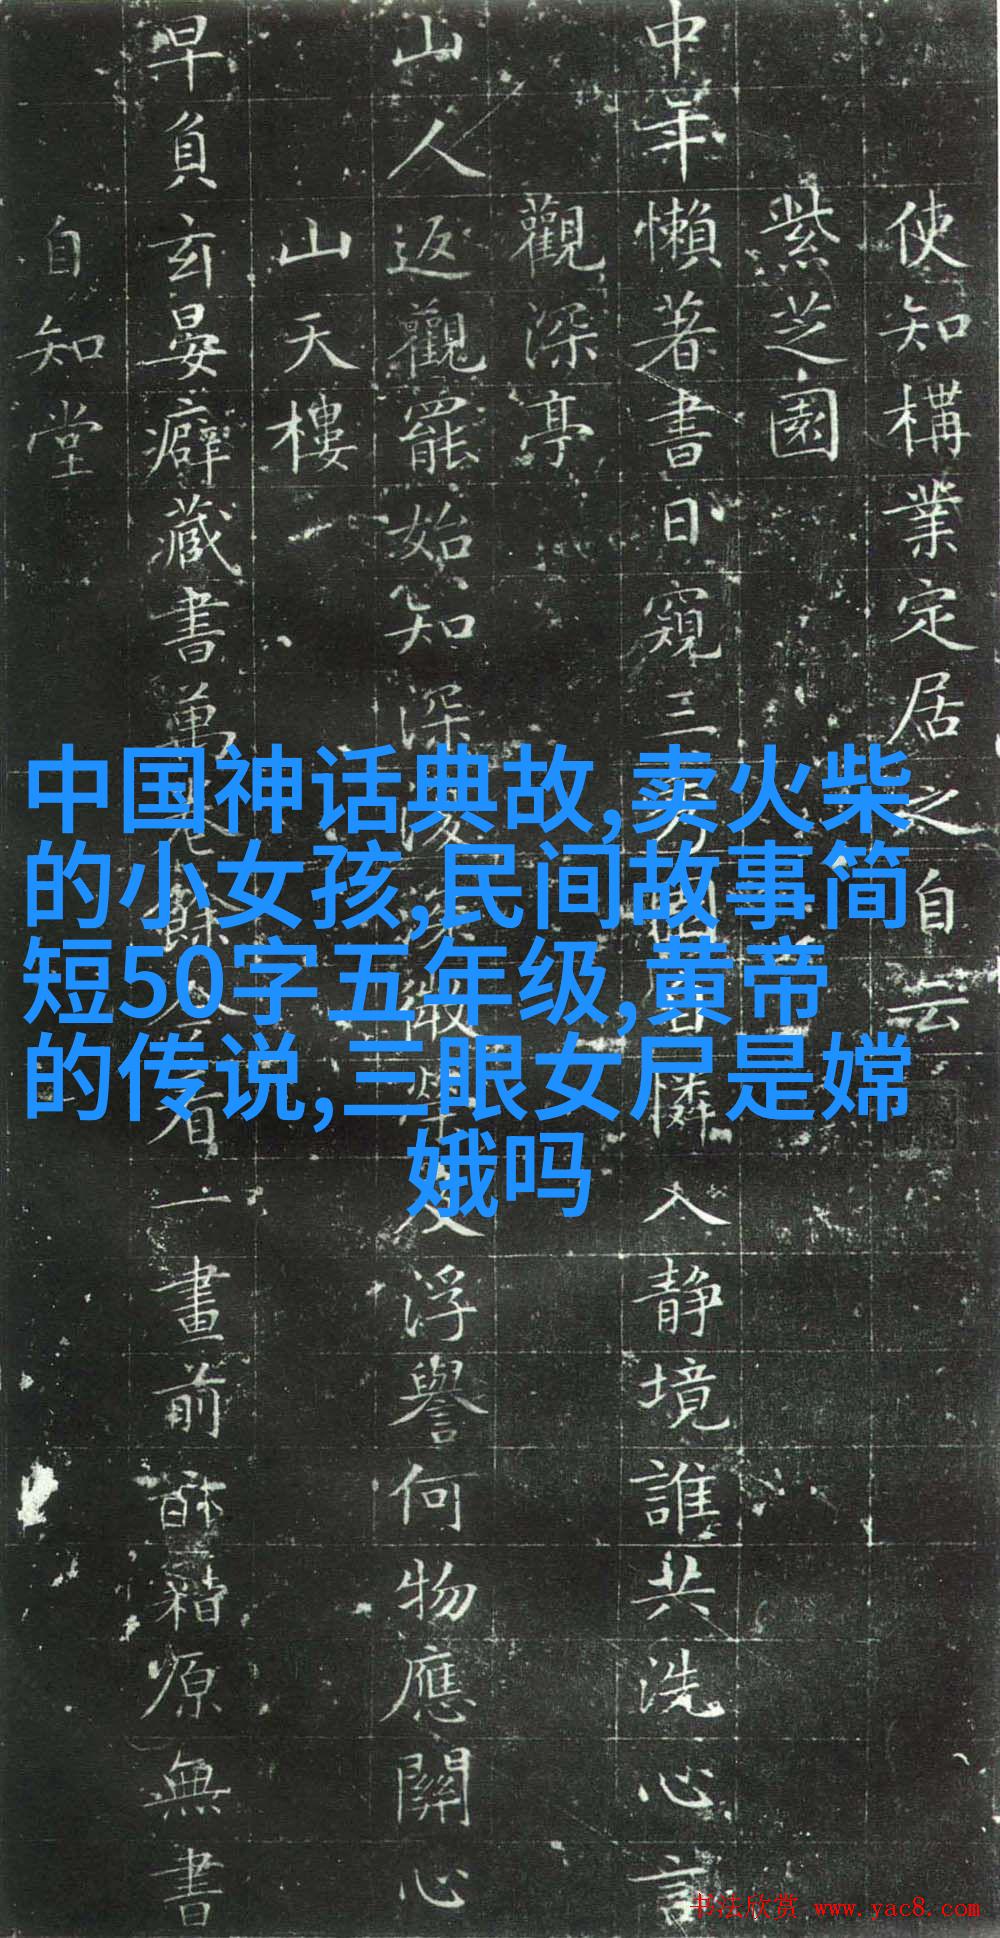 使知構業定居之自云
紫芝園
中年懶著書日窺三憐入静境誰共洗心言
觀深亭
山人返觀罷始知深浮譽何物應關心
山天樓
早負玄晏癖藏書萬餘看一畫前籍原無書
自知堂
中国神话典故,卖火柴
的小女孩,民间故事简
短50字五年级,黄帝
的传说,三眼女尸是嫦
娥吗
书法欣赏 www.yac8.com